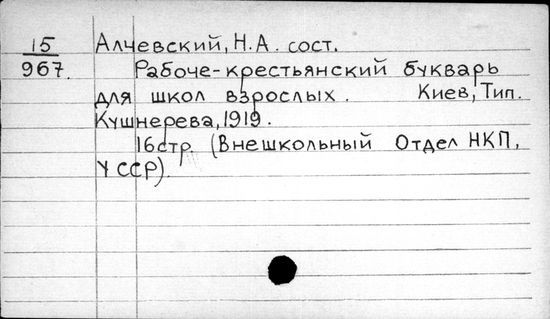 15 Алчевский, Н.А. сост.
967. Рабоче-крестьянский букварь
для школ взрослых. Киев, Тип.
Кушнерева, 1919.
16 стр. (Внешкольный Отдел НКП,
УССР).